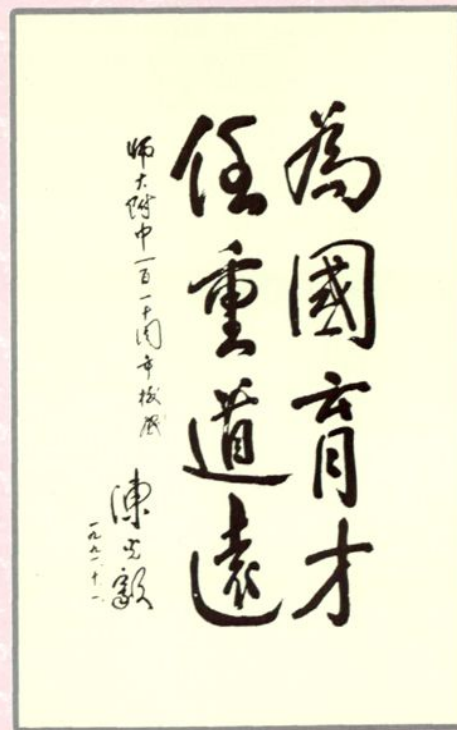 為國育才
任重道遠
师大附中一百一十周年校慶
陳光毅
一九九一.十.一.